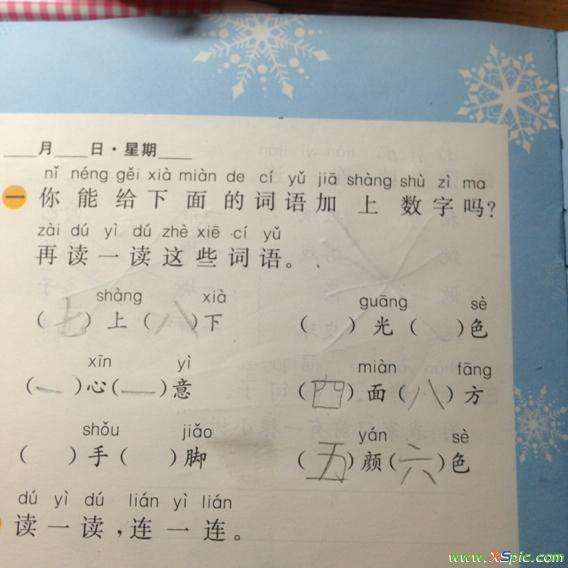 ____月____日·星期____
nǐ néng gěi xià miàn de cí yǔ jiā shàng shù zì ma
一 你能给下面的词语加上数字吗？
zài dú yì dú zhè xiē cí yǔ
再读一读这些词语。
shàng xià guāng sè
(七)上(八)下 ( )光( )色
xīn yì miàn fāng
(一)心(一)意 (四)面(八)方
shǒu jiǎo yán sè
( )手( )脚 (五)颜(六)色
dú yì dú lián yì lián
读一读，连一连。
www.XSpic.com